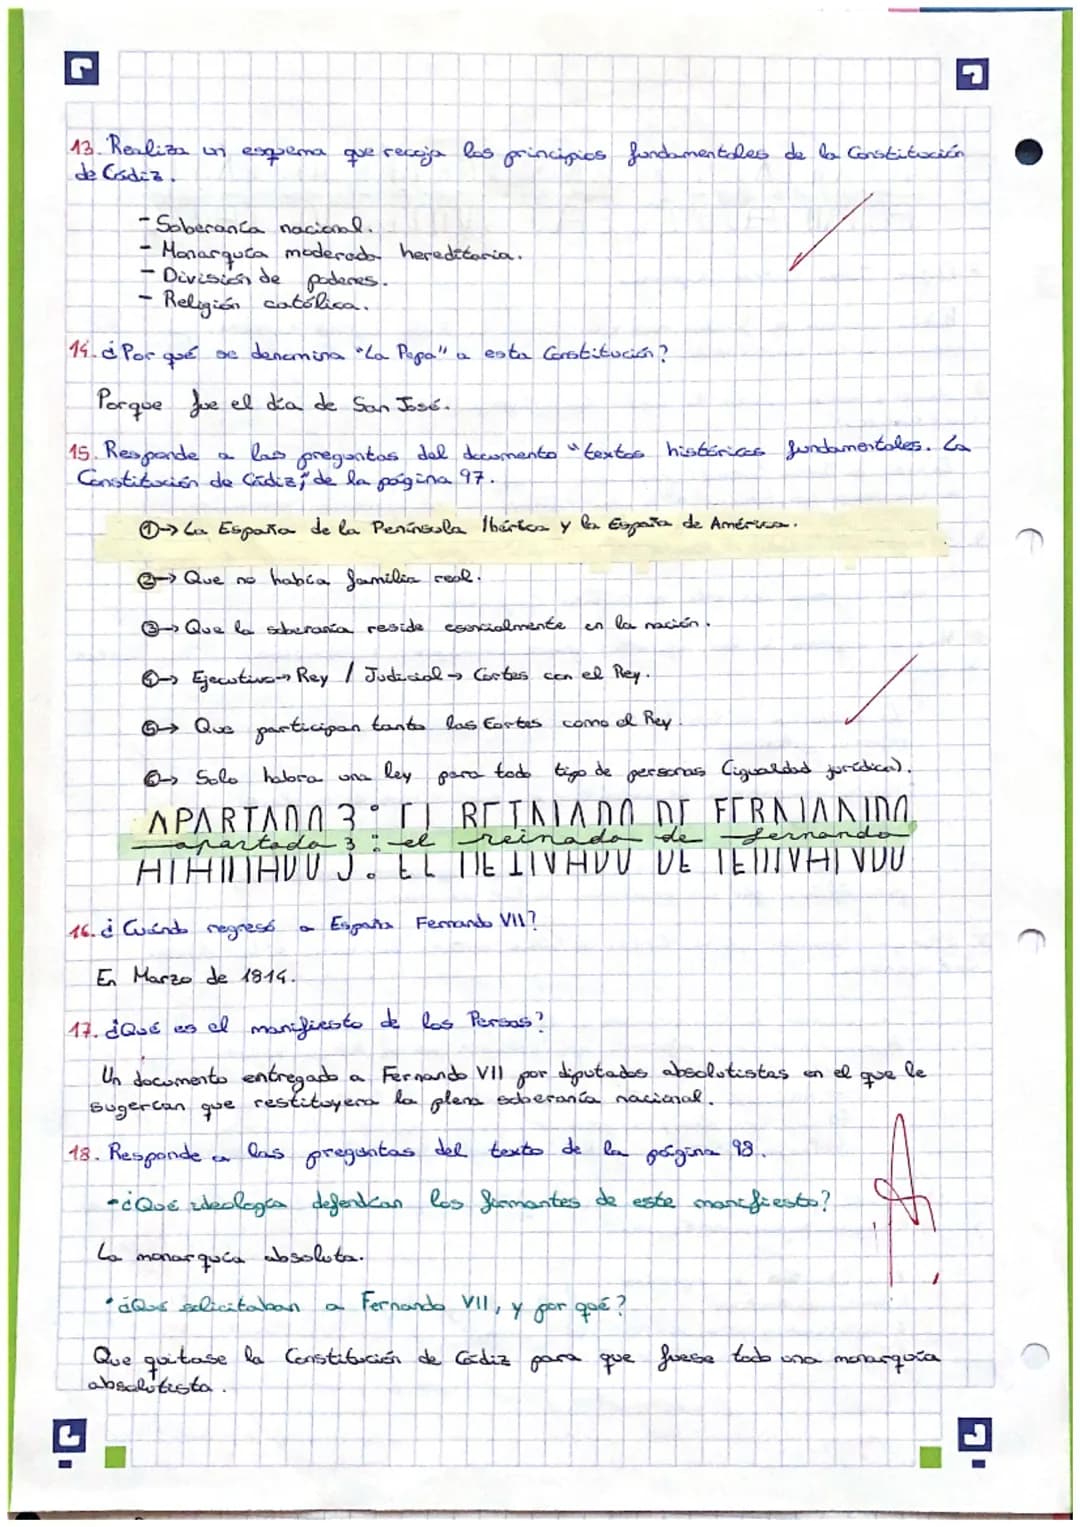 13. Realiza un esquema que recoja los principios fundamentales de la Constitución
de Cádiz.
- Soberanía nacional.
- Monarquía moderada hereditaria.
- División de poderes.
- Religión católica.
14. ¿Por qué se denomina "La Pepa" a esta Constitución?
Porque fue el día de San José.
15. Responde a las preguntas del documento "textos históricos fundamentales. La
Constitución de Cádiz", de la página 97.
①→ La España de la Península Ibérica y la España de América.
②→ Que no había familia real.
③→ Que la soberanía reside esencialmente en la nación.
④→ Ejecutivo→ Rey / Judicial→ Cortes con el Rey.
⑤→ Que participan tanto las Cortes como el Rey.
⑥→ Solo habra una ley para todo tipo de personas (igualdad jurídica).
APARTADO 3: EL REINADO DE FERNANDO
apartado 3: el reinado de fernando
16. ¿Cuándo regresó a España Fernando VII?
En Marzo de 1814.
17. ¿Qué es el manifiesto de los Persas?
Un documento entregado a Fernando VII por diputados absolutistas en el que le
sugerían que restituyera la plena soberanía nacional.
18. Responde a las preguntas del texto de la página 98.
-¿Qué ideología defendían los firmantes de este manifiesto?
La monarquía absoluta.
·¿Qué solicitaban a Fernando VII, y por qué?
Que quitase la Constitución de Cádiz para que fuese todo una monarquía
absolutista.